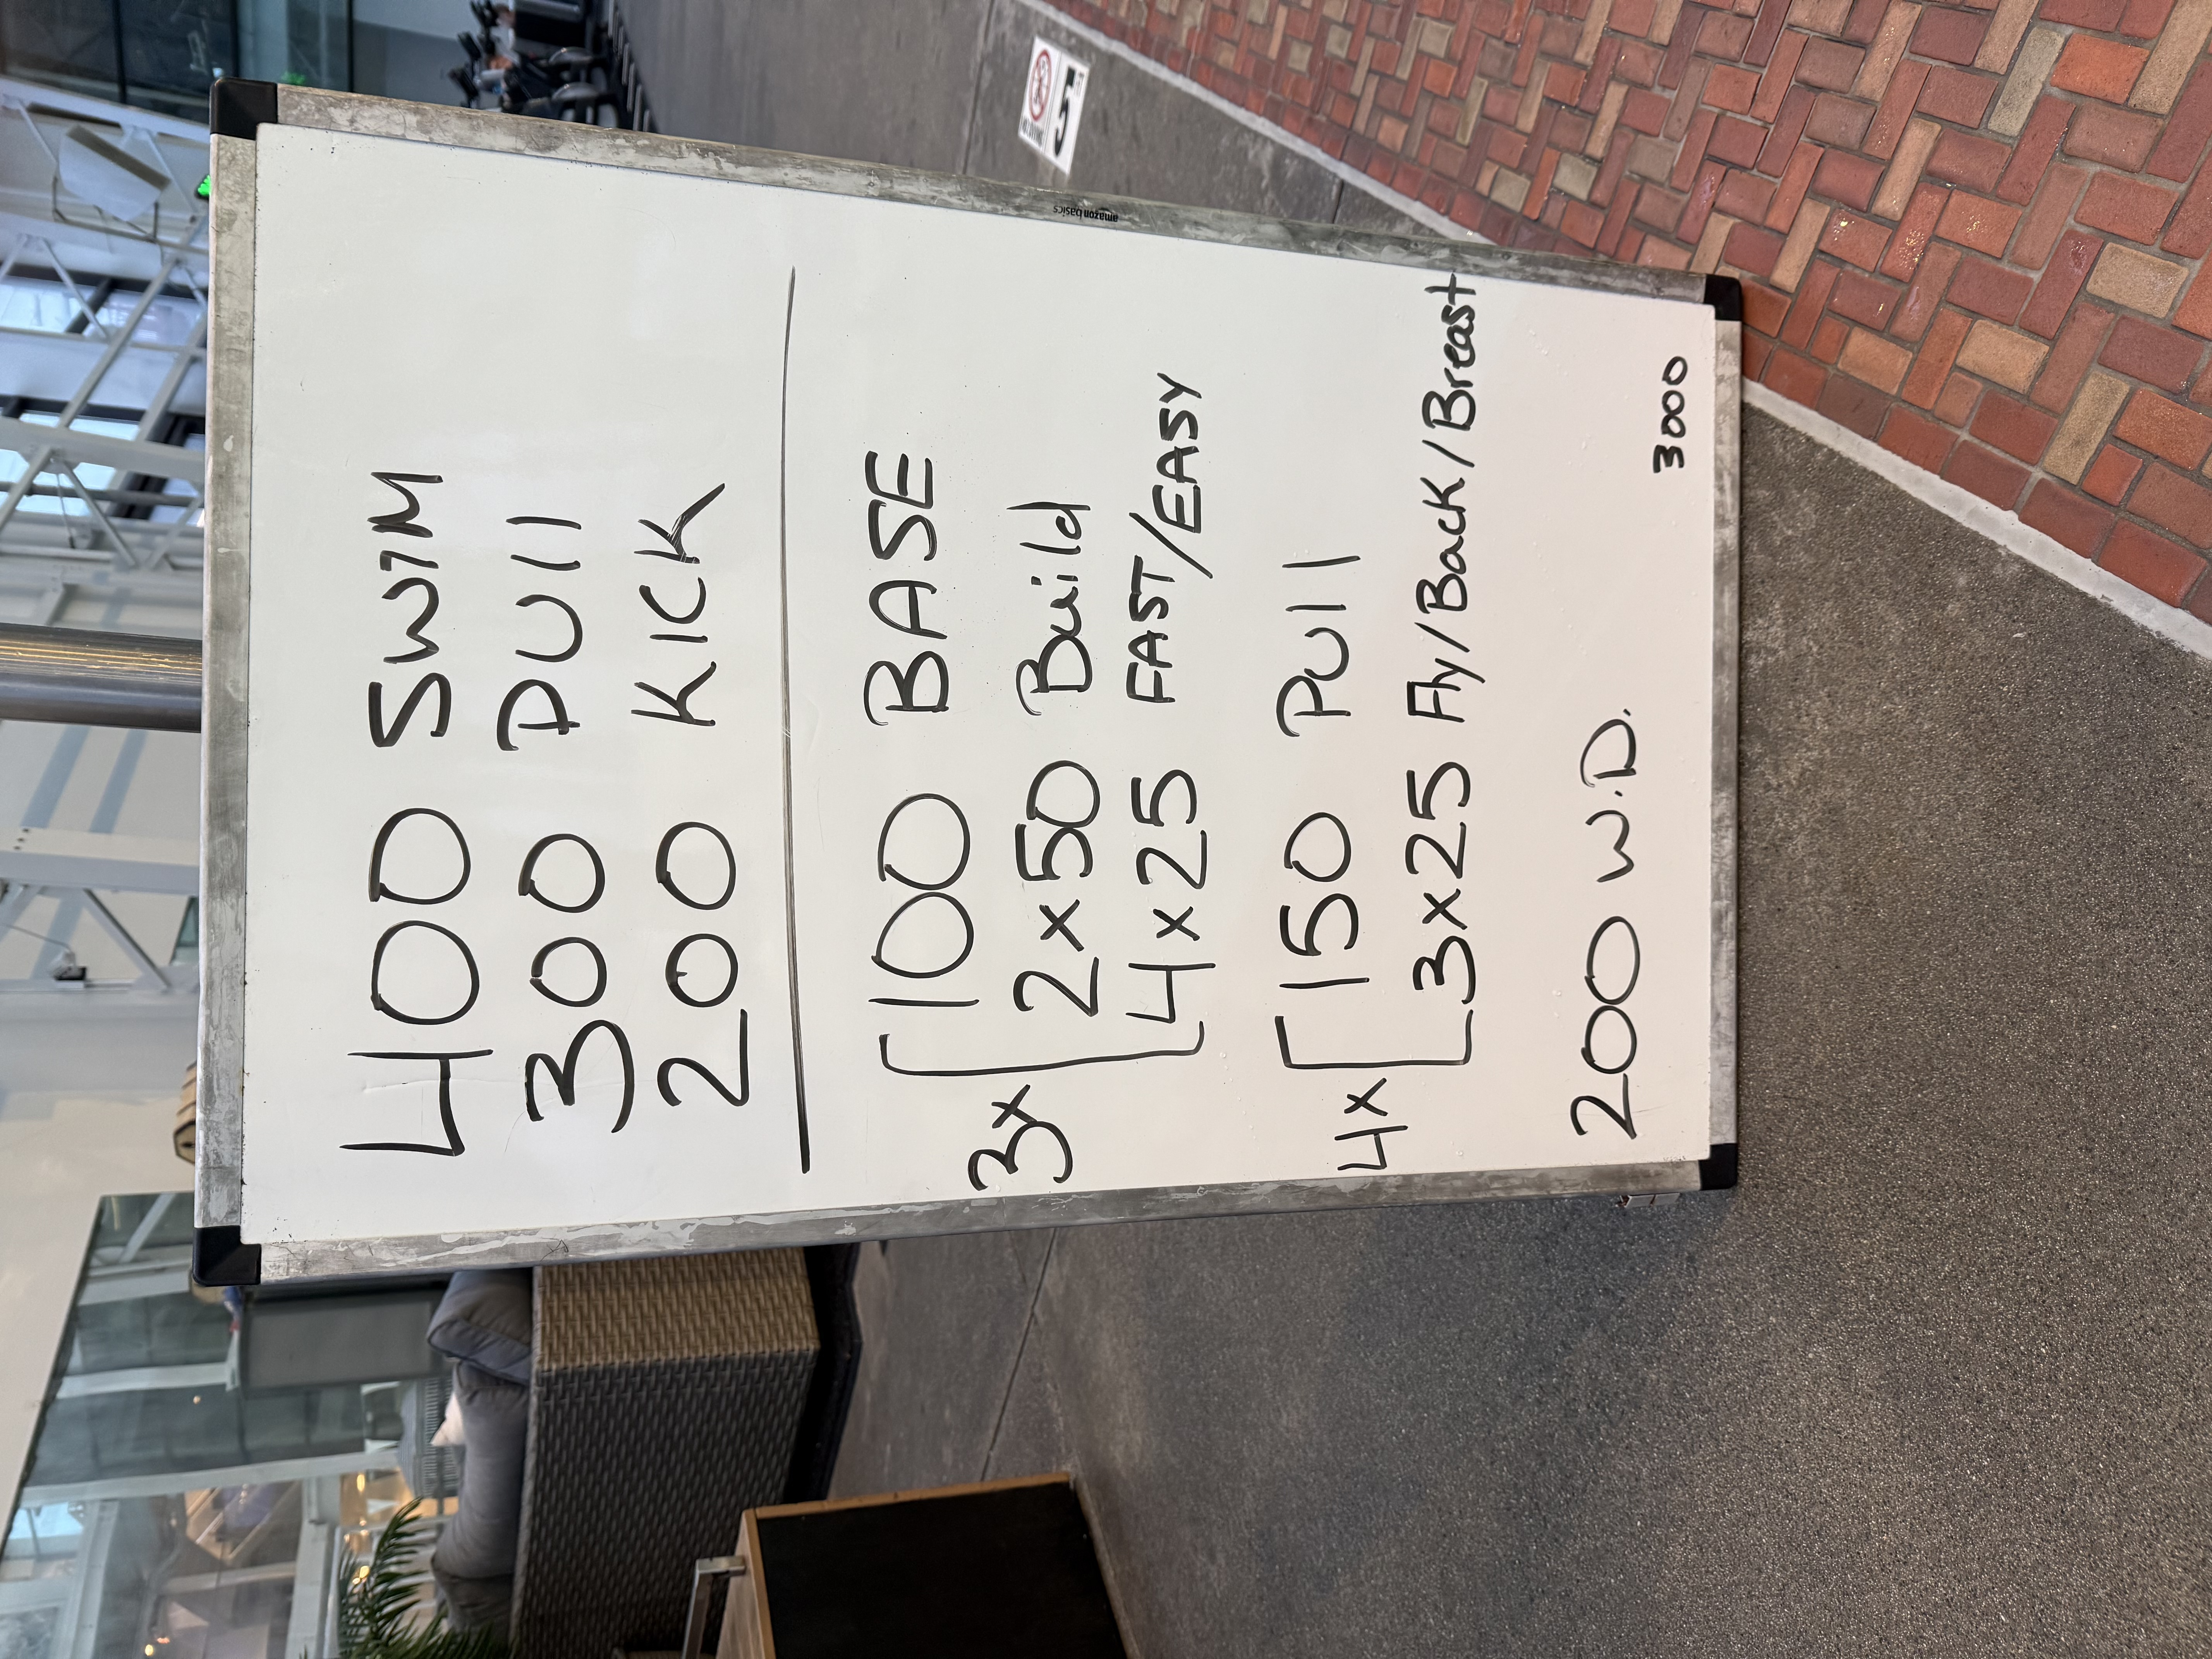 400 SWIM
300 PUll
200 KICK
3x [ 100 BASE
2x50 Build
4x25 FAST/EASY
4x [ 150 PUll
3x25 Fly/Back/Breast
200 W.D.
3000
amazon basics
5 FT